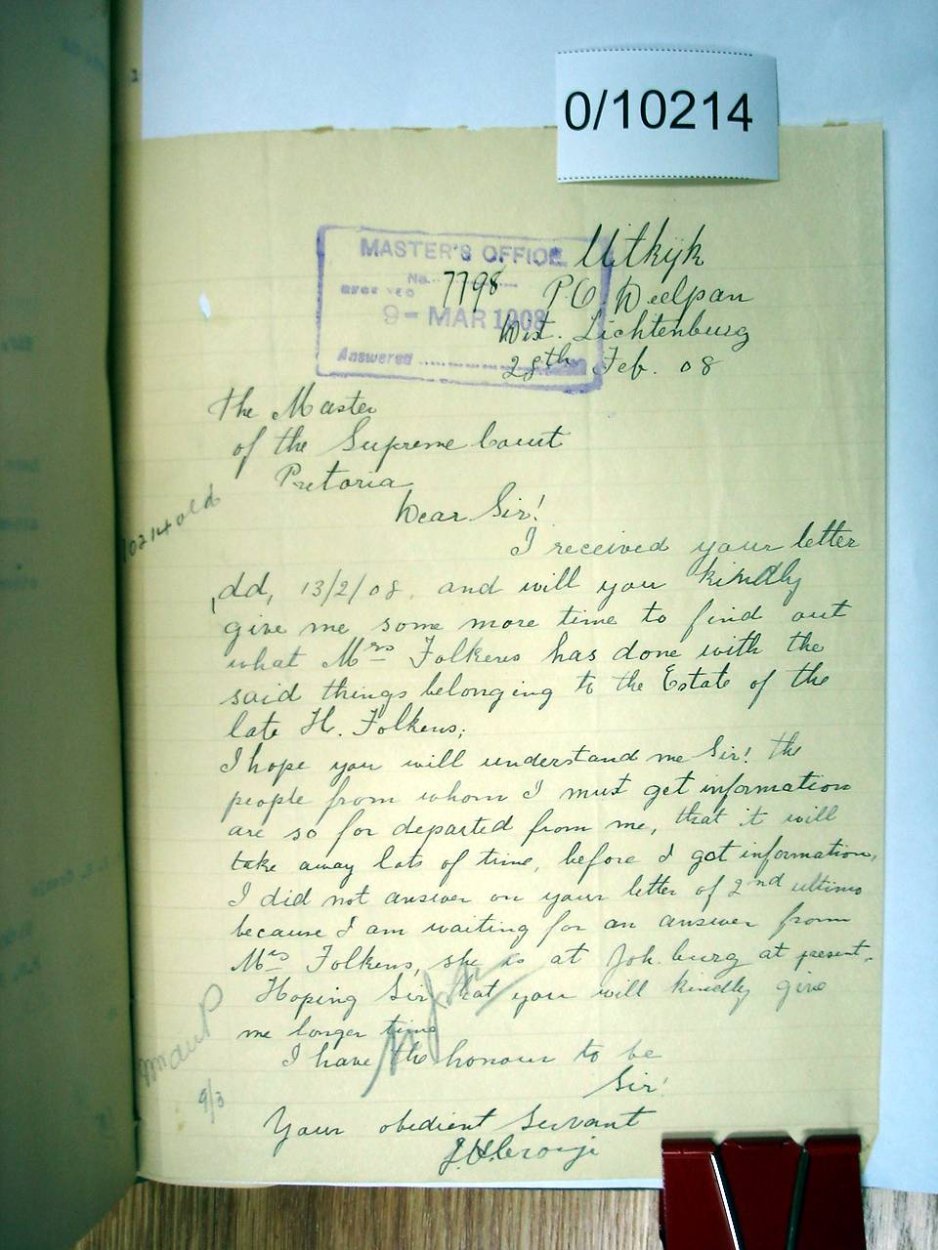 0/10214
MASTER'S OFFICE
No. 7798
RECEIVED
9 - MAR 1908
Answered
Uitkijk
P.O. Deelpan
Dist. Lichtenburg
28th Feb. 08
The Master
of the Supreme Court
Pretoria
10214 old
Dear Sir!
I received your letter
dd, 13/2/08, and will you kindly
give me some more time to find out
what Mrs Folkens has done with the
said things belonging to the Estate of the
late H. Folkens;
I hope you will understand me Sir! the
people from whom I must get information
are so for departed from me, that it will
take away lots of time, before I got information,
I did not answer on your letter of 2nd ultimo
because I am waiting for an answer from
Mrs Folkens, she is at Joh.burg at present.
Hoping Sir that you will kindly give
me longer time
I have the honour to be
Sir!
9/3
Your obedient Servant
Cronji